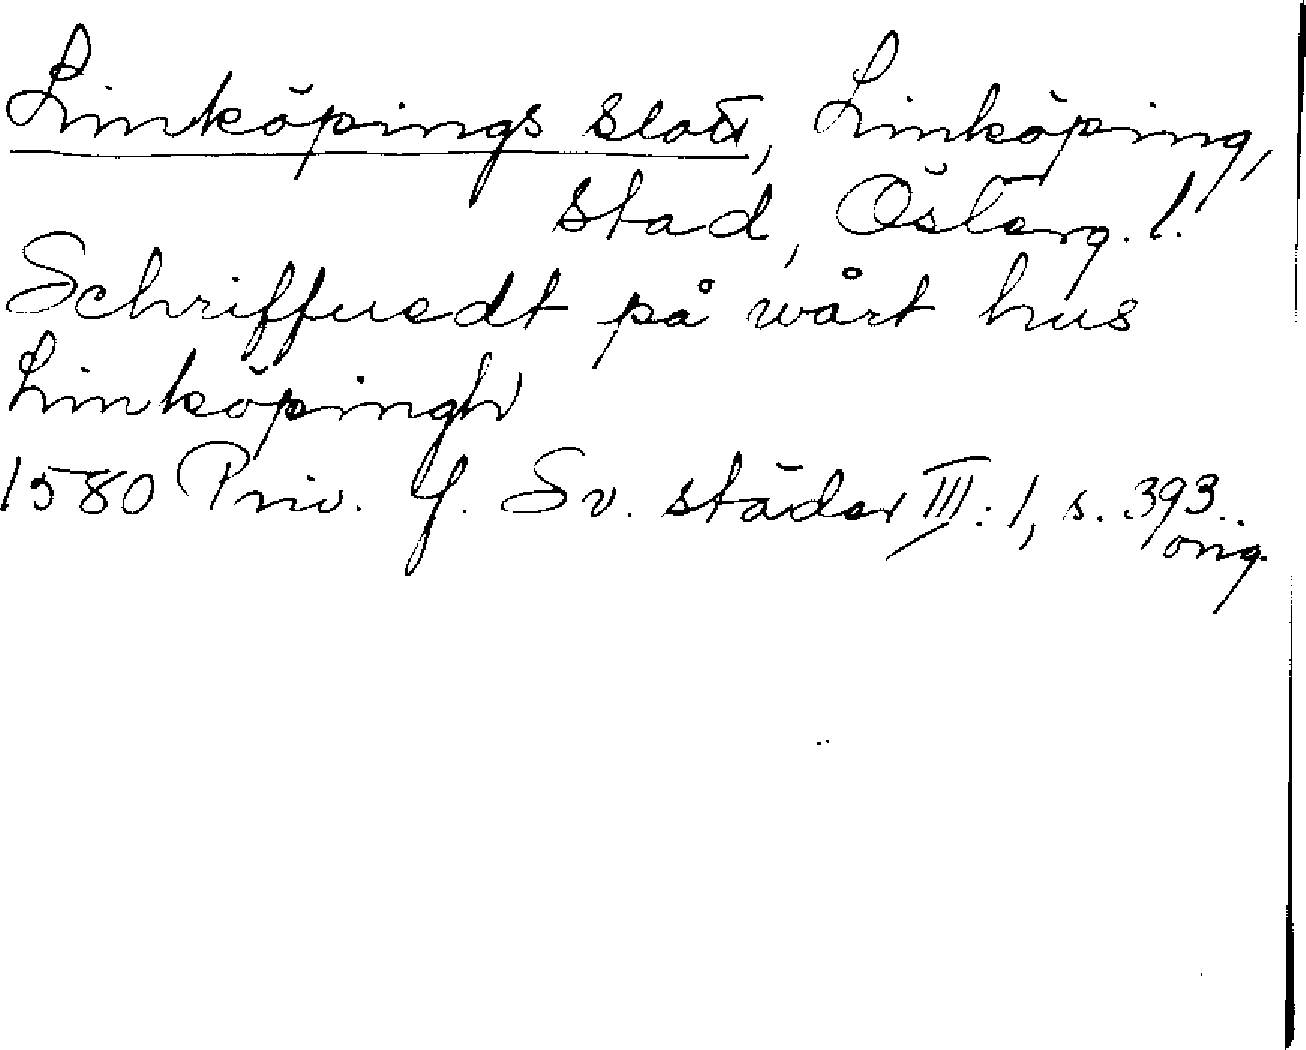 Linköpings slott, Linköping,
stad, Österg. l.
Schriffuedt på wårt hus
Linköpingh
1580 Priv. f. Sv. städer III: 1, s. 393.
orig.